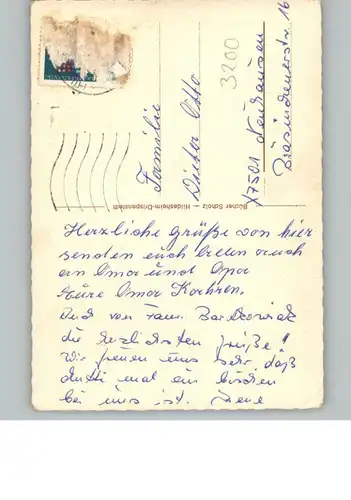 Familie
Dieter Otto
X7501 Neuhausen
Dissenchenerstr. 16
3200
Bücher Scholz – Hildesheim-Drispenstedt
Herzliche Grüße von hier
senden euch beiden auch
an Oma und Opa
Eure Oma
Und von Fam.
die herzlichsten Grüße!
Wir freuen uns sehr, daß
Mutti mal ein bischen
bei uns ist.